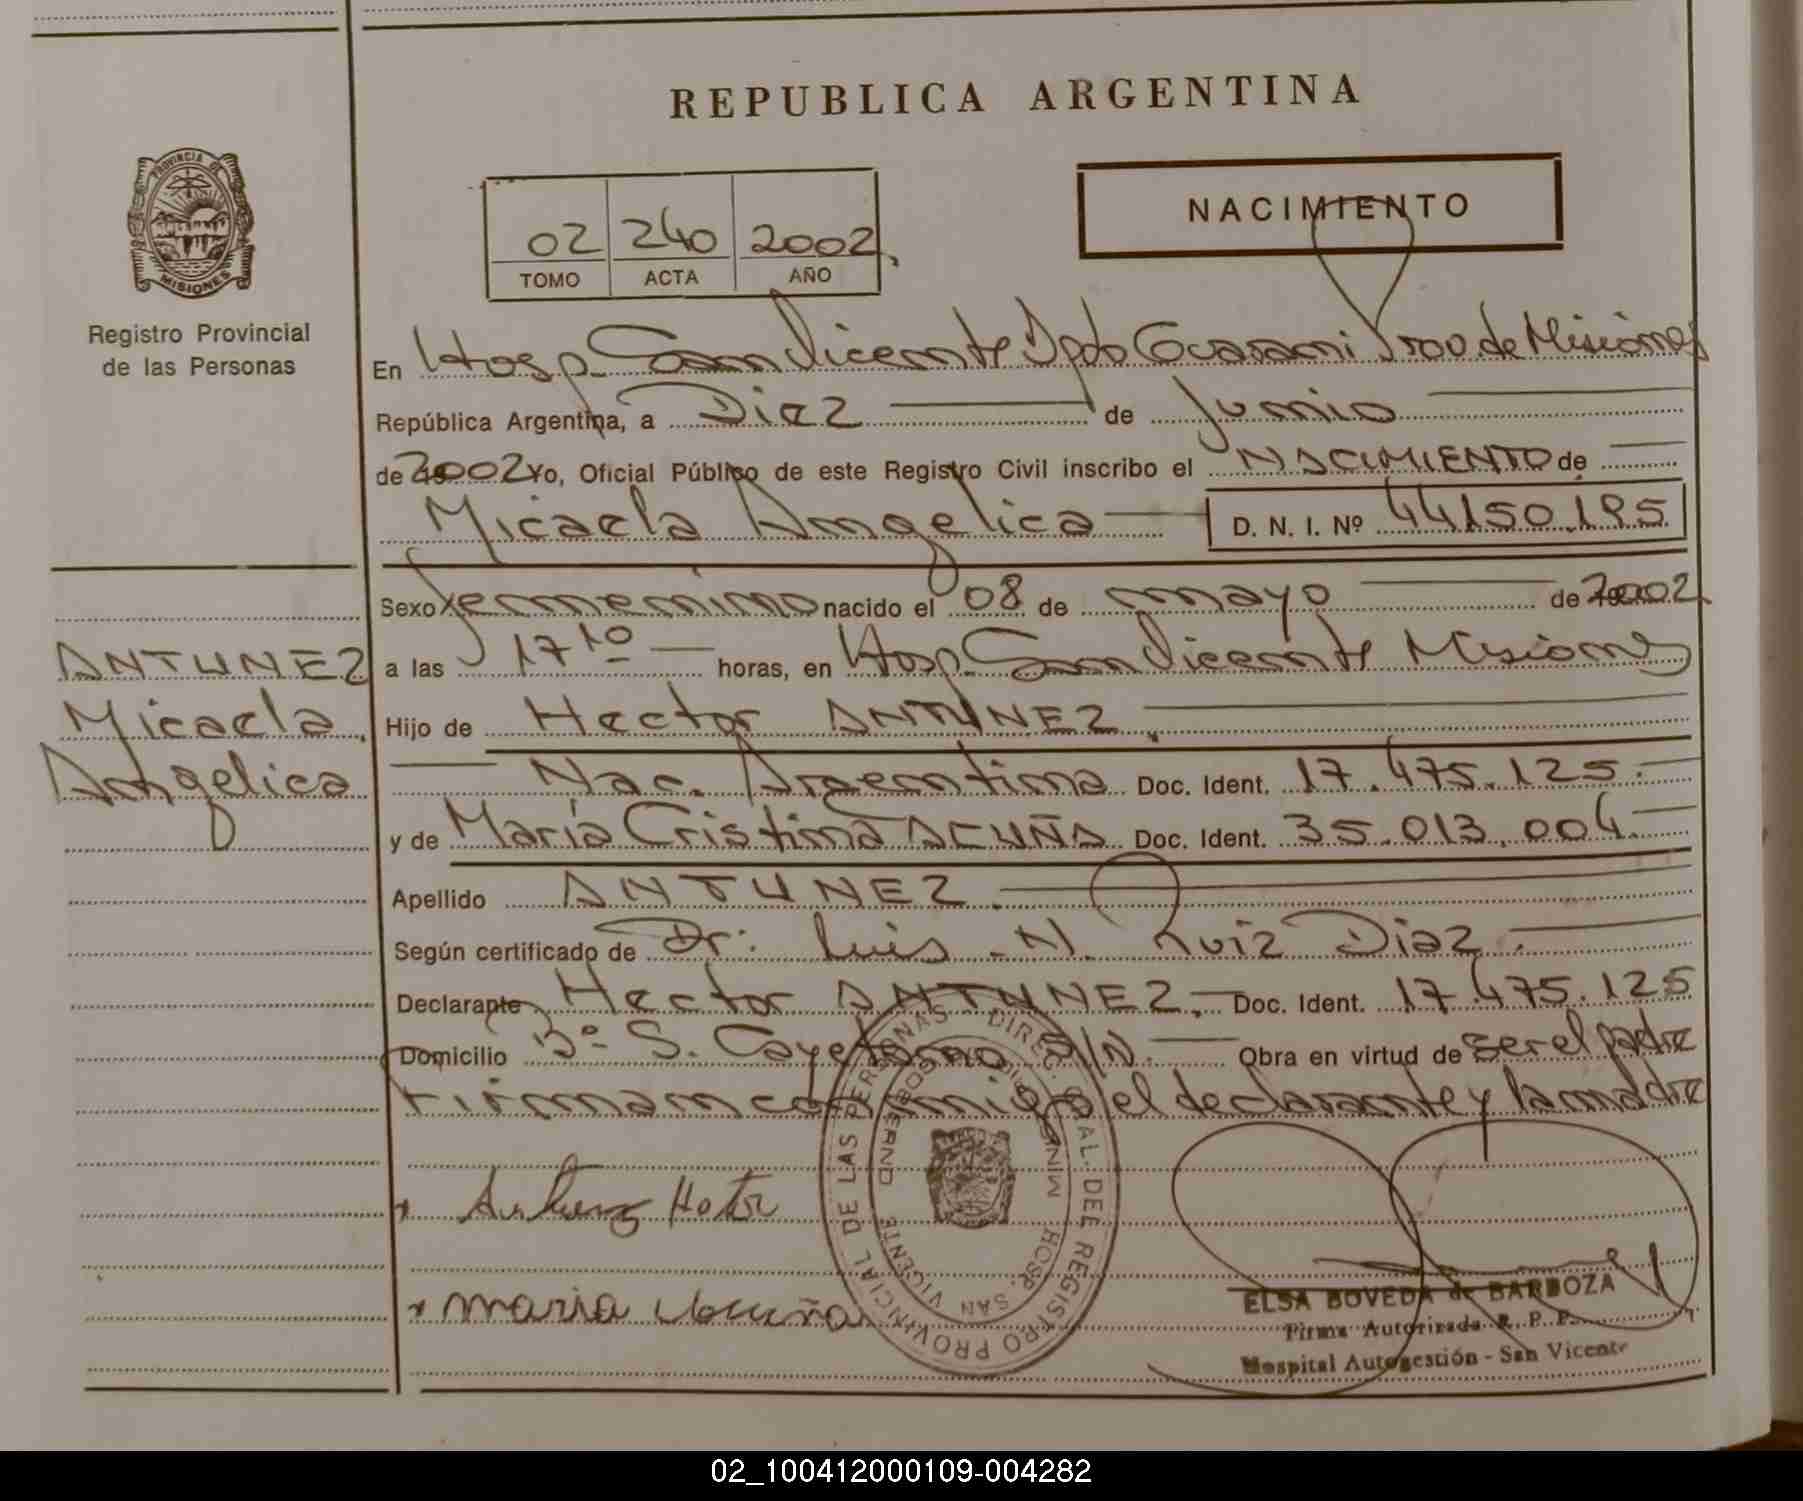 REPUBLICA ARGENTINA
PROVINCIA DE
MISIONES
Registro Provincial
de las Personas
02 240 2002
TOMO ACTA AÑO
NACIMIENTO
En Hosp. San Vicente Dpto Guarani Prov. de Misiones
República Argentina, a Diez de Junio
de 2002 Yo, Oficial Público de este Registro Civil inscribo el NACIMIENTO de
Micaela Angelica D. N. I. Nº 44150.195
Sexo Femenino nacido el 08 de mayo de 2002
a las 17 10 horas, en Hosp. San Vicente Misiones
Hijo de Hector ANTUNEZ.
Nac. Argentina Doc. Ident. 17.475.125.
y de María Cristina ACUÑA Doc. Ident. 35.013.004.
Apellido ANTUNEZ.
Según certificado de Dr: Luis N. Ruiz Diaz.
Declarante Hector ANTUNEZ. Doc. Ident. 17.475.125
Domicilio Bº S. Cayetano S/N. Obra en virtud de ser el padre
Firman conmigo el declarante y la madre
ANTUNEZ
Micaela
Angelica
Antunez Hector
maria Acuña
DIREC. GRAL. DEL REGISTRO PROVINCIAL DE LAS PERSONAS
HOSP. SAN VICENTE
ELSA BOVEDA de BARBOZA
Firma Autorizada R. P. P.
Hospital Autogestión - San Vicente
02_100412000109-004282